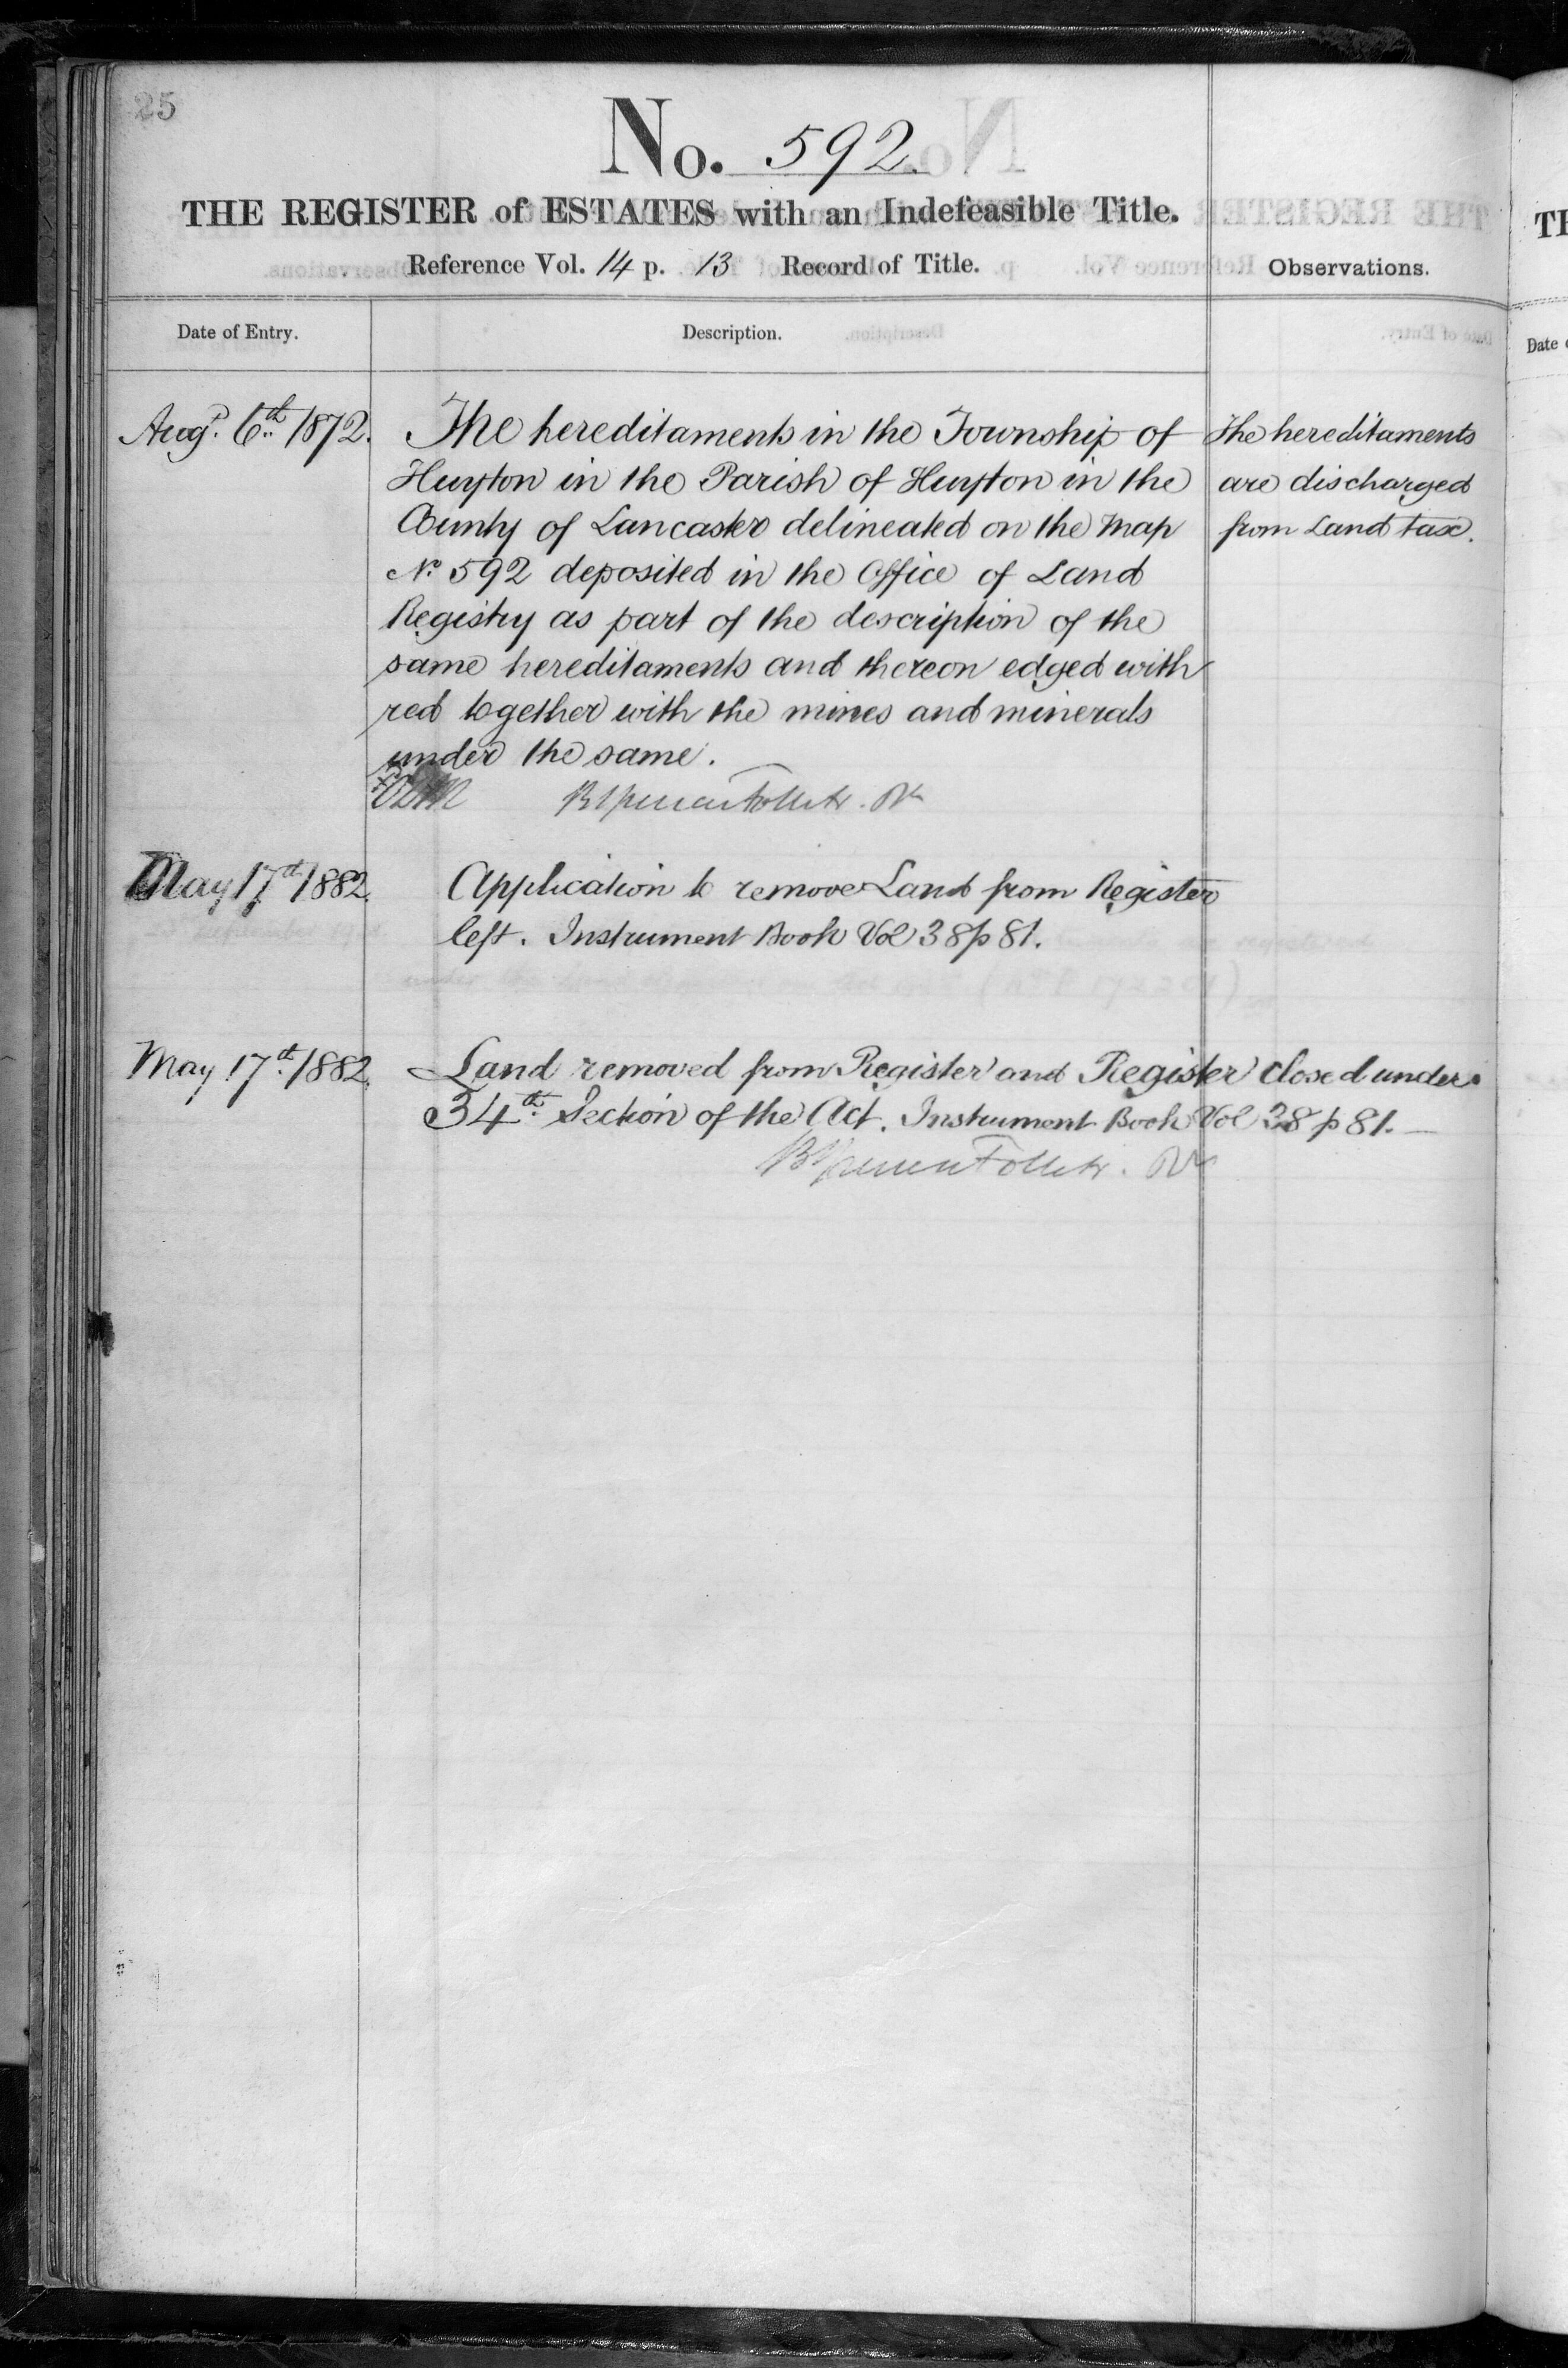 25
No. 592.
THE REGISTER of ESTATES with an Indefeasible Title.
Reference Vol. 14 p. 13 Record of Title.
Observations.
Date of Entry.
Description.
Augt. 6th 1872.
The hereditaments in the Township of
Huyton in the Parish of Huyton in the
County of Lancaster delineated on the Map
No 592 deposited in the Office of Land
Registry as part of the description of the
same hereditaments and thereon edged with
red together with the mines and minerals
under the same.
The hereditaments
are discharged
from Land tax.
May 17th 1882.
Application to remove Land from Register
left. Instrument Book Vol 38 p 81.
May 17th 1882.
Land removed from Register and Register closed under
34th Section of the Act. Instrument Book Vol 38 p 81.